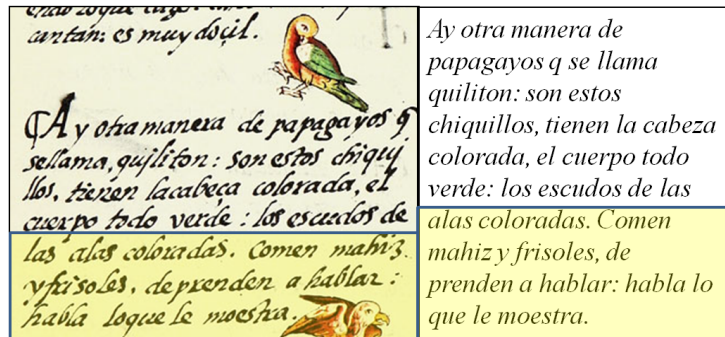 cantan: es muy doçil.
¶Ay otra manera de papagayos q̃
sellama, quiliton: son estos chiqui
llos, tienen lacabeça colorada, el
cuerpo todo verde: los escudos de
las alas coloradas. Comen mahiz
yfrisoles, deprenden a hablar:
habla loque le moestra.
Ay otra manera de
papagayos q se llama
quiliton: son estos
chiquillos, tienen la cabeza
colorada, el cuerpo todo
verde: los escudos de las
alas coloradas. Comen
mahiz y frisoles, de
prenden a hablar: habla lo
que le moestra.